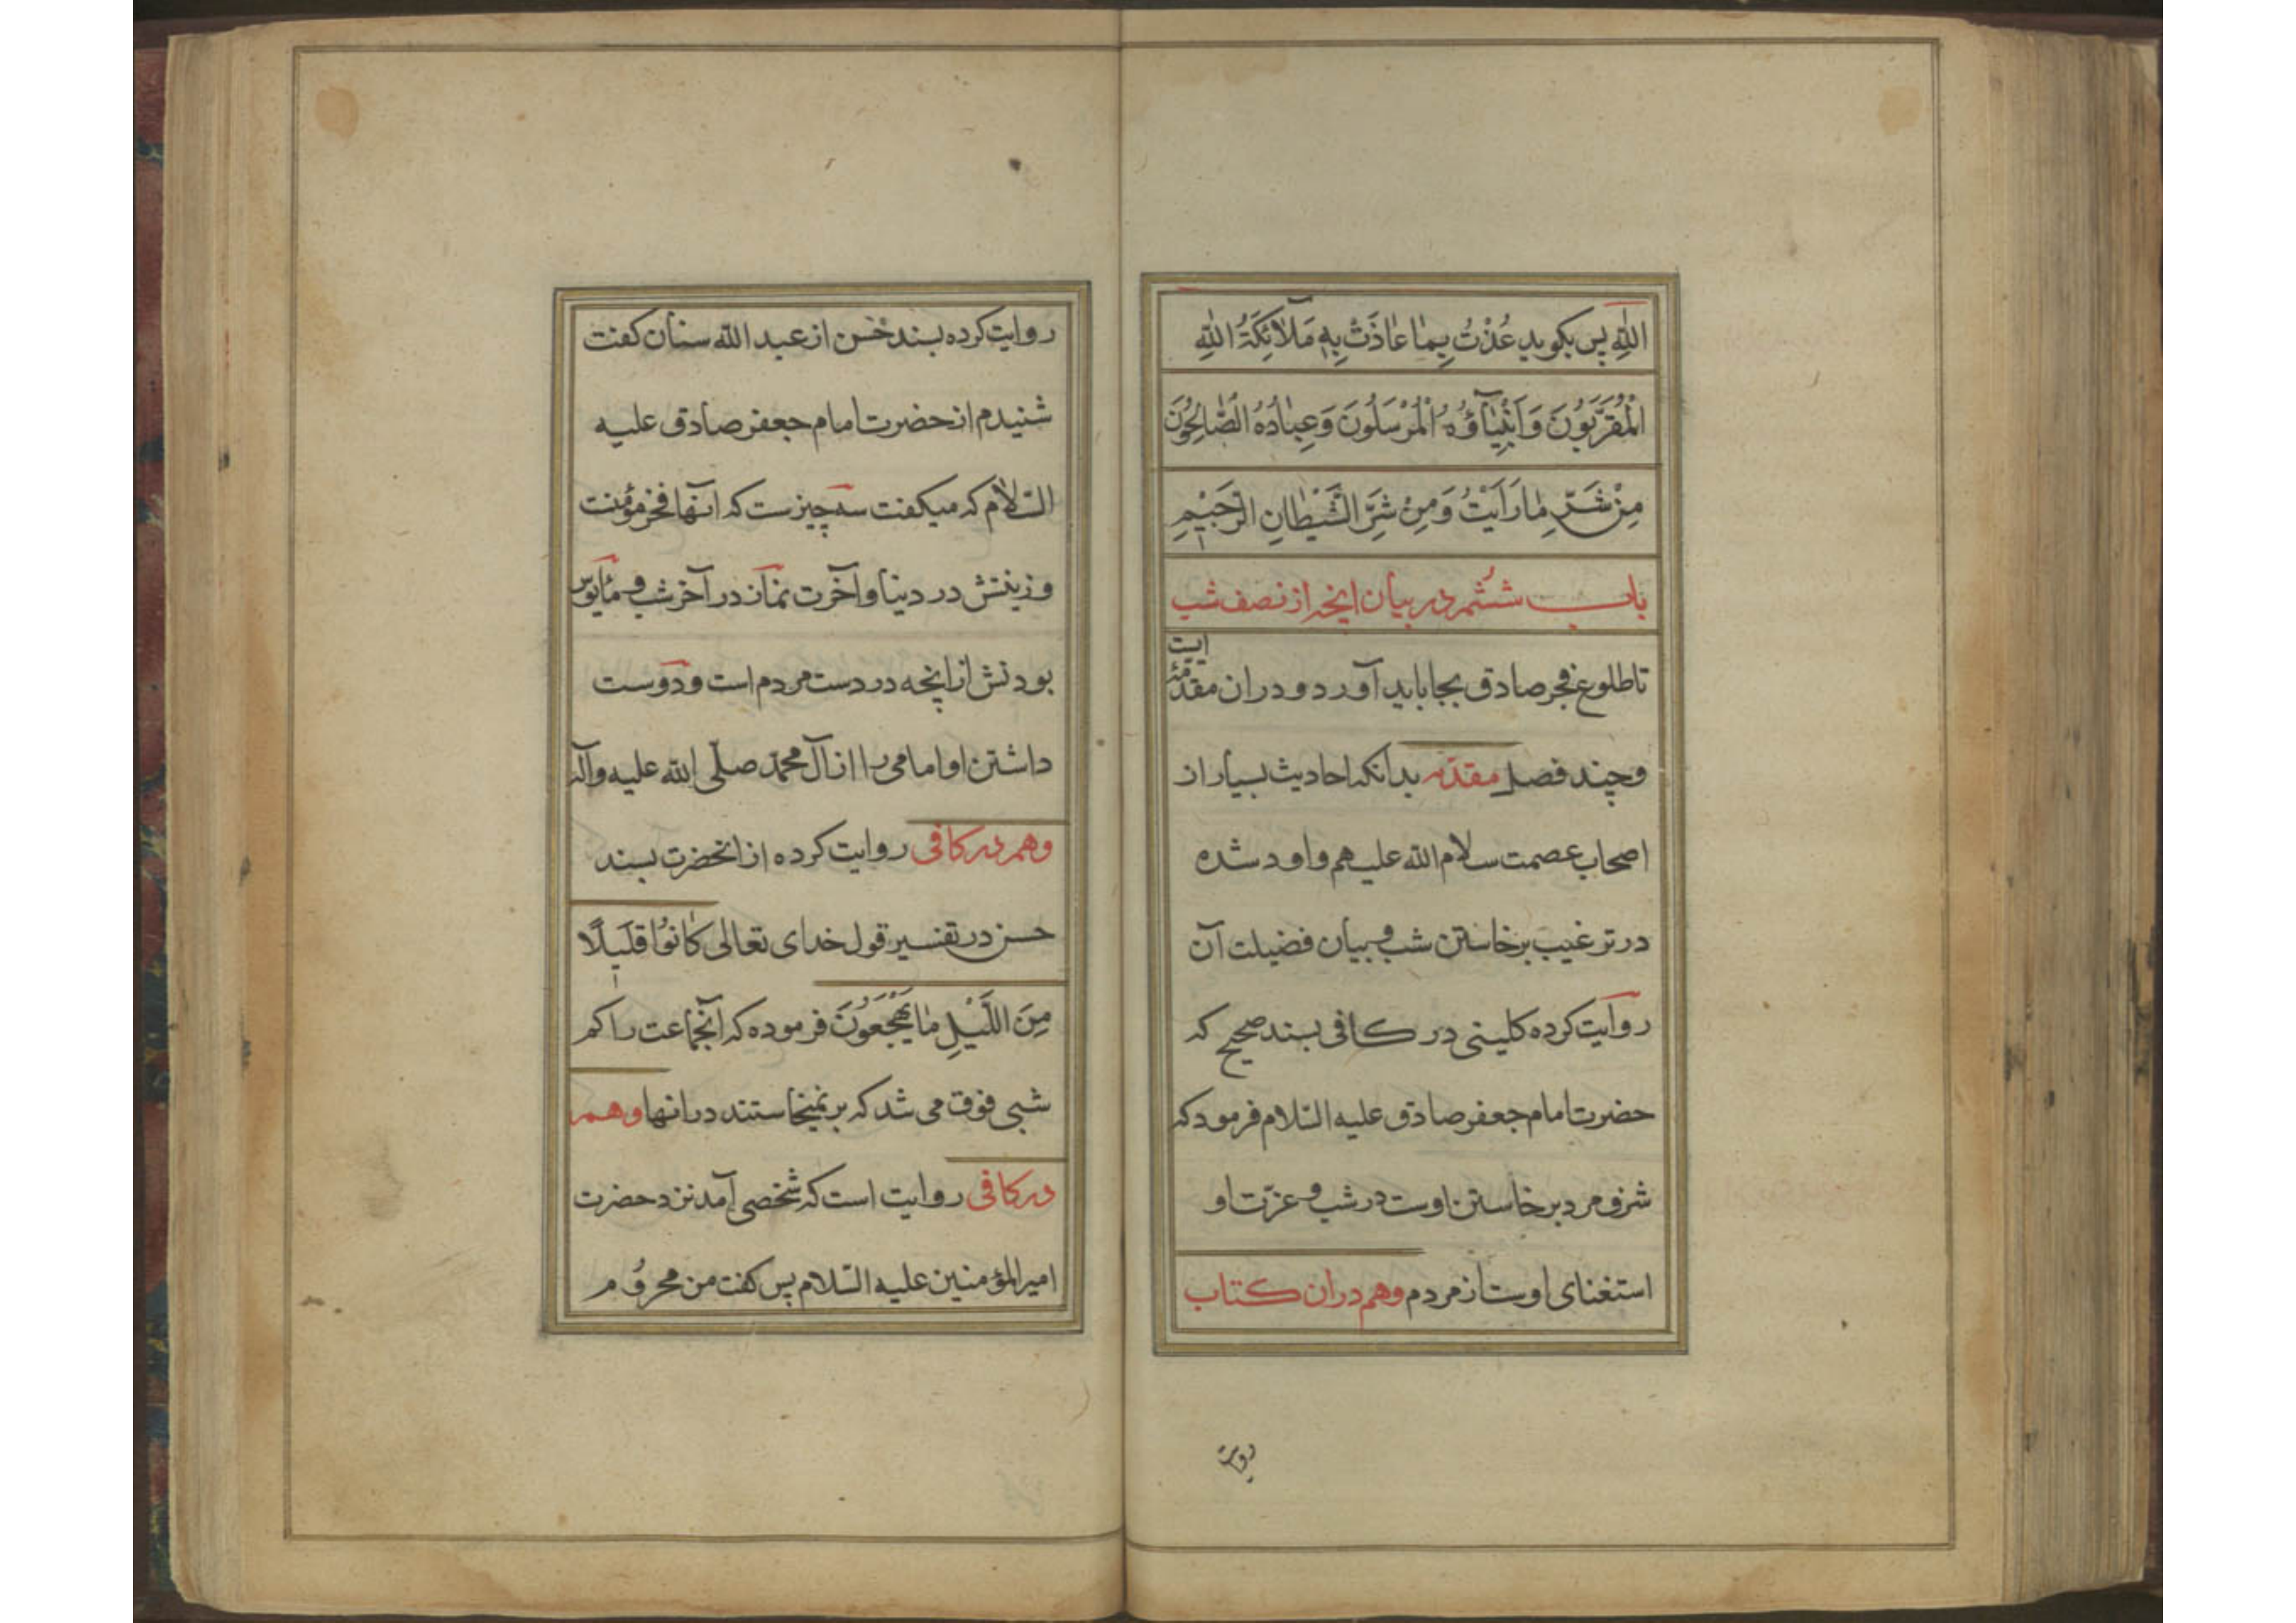 اللّٰهِ پس بکوید عُذْتُ بِمٰا عٰاذَتْ بِهِ مَلاٰئِکَةُ اللّٰهِ
الْمُقَرَّبُونَ وَاَنْبِیٰآؤُهُ الْمُرْسَلُونَ وَعِبٰادُهُ الصّٰالِحُونَ
مِنْ شَرِّ مٰا رَاَیْتُ وَمِنْ شَرِّ الشَّیْطٰانِ الرَّجٖیْمِ
باب ششم در بیان انچه از نصف شب
تا طلوع فجر صادق بجا باید آورد و دران مقدّمه ایست
و چند فصل مقدّمه بدانکه احادیث بسیار از
اصحاب عصمت سلام الله علیهم وارد شده
در ترغیب برخاستن شب و بیان فضیلت آن
روایت کرده کلینی در کافی بسند صحیح که
حضرت امام جعفر صادق علیه السّلام فرمود که
شرف مرد برخاستن اوست در شب و عزّت او
استغنای اوست از مردم وهم دران کتاب
روایت
روایت کرده بسند حسن از عبد الله سنان کفت
شنیدم از حضرت امام جعفر صادق علیه
السّلام که میکفت سه چیزست که انها فخر مؤمنت
و زینتش در دنیا و آخرت نماز در آخر شب و مأیوس
بودنش از انچه در دست مردم است و دوست
داشتن او امامی را از آل محمّد صلّی الله علیه وآله
وهم در کافی روایت کرده از انحضرت بسند
حسن در تفسیر قول خدای تعالی کٰانُوا قَلٖیلًا
مِنَ اللَّیْلِ مٰا یَهْجَعُونَ فرموده که آنجماعت را کم
شبی فوت می شد که بر نمیخاستند درانها وهم
در کافی روایت است که شخصی آمد نزد حضرت
امیرالمؤمنین علیه السّلام پس کفت من محروم